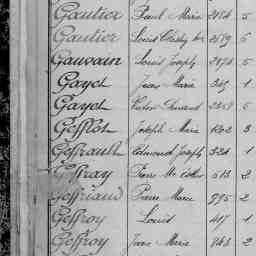 Gautier Paul Marie 2184 5
Gautier Louis 2579 5
Gauvain Louis Joseph 2894 5
Gayet Jean Marie 349 1
Gayet Victor Fernand 2253 5
Gefflot Joseph Marie 1202 3
Geffrault Edmond Joseph 324 1
Geffray Pierre M 513 2
Geffriaud Pierre Marie 995 2
Geffroy Louis 417 1
Geffroy Jean Marie 743 2